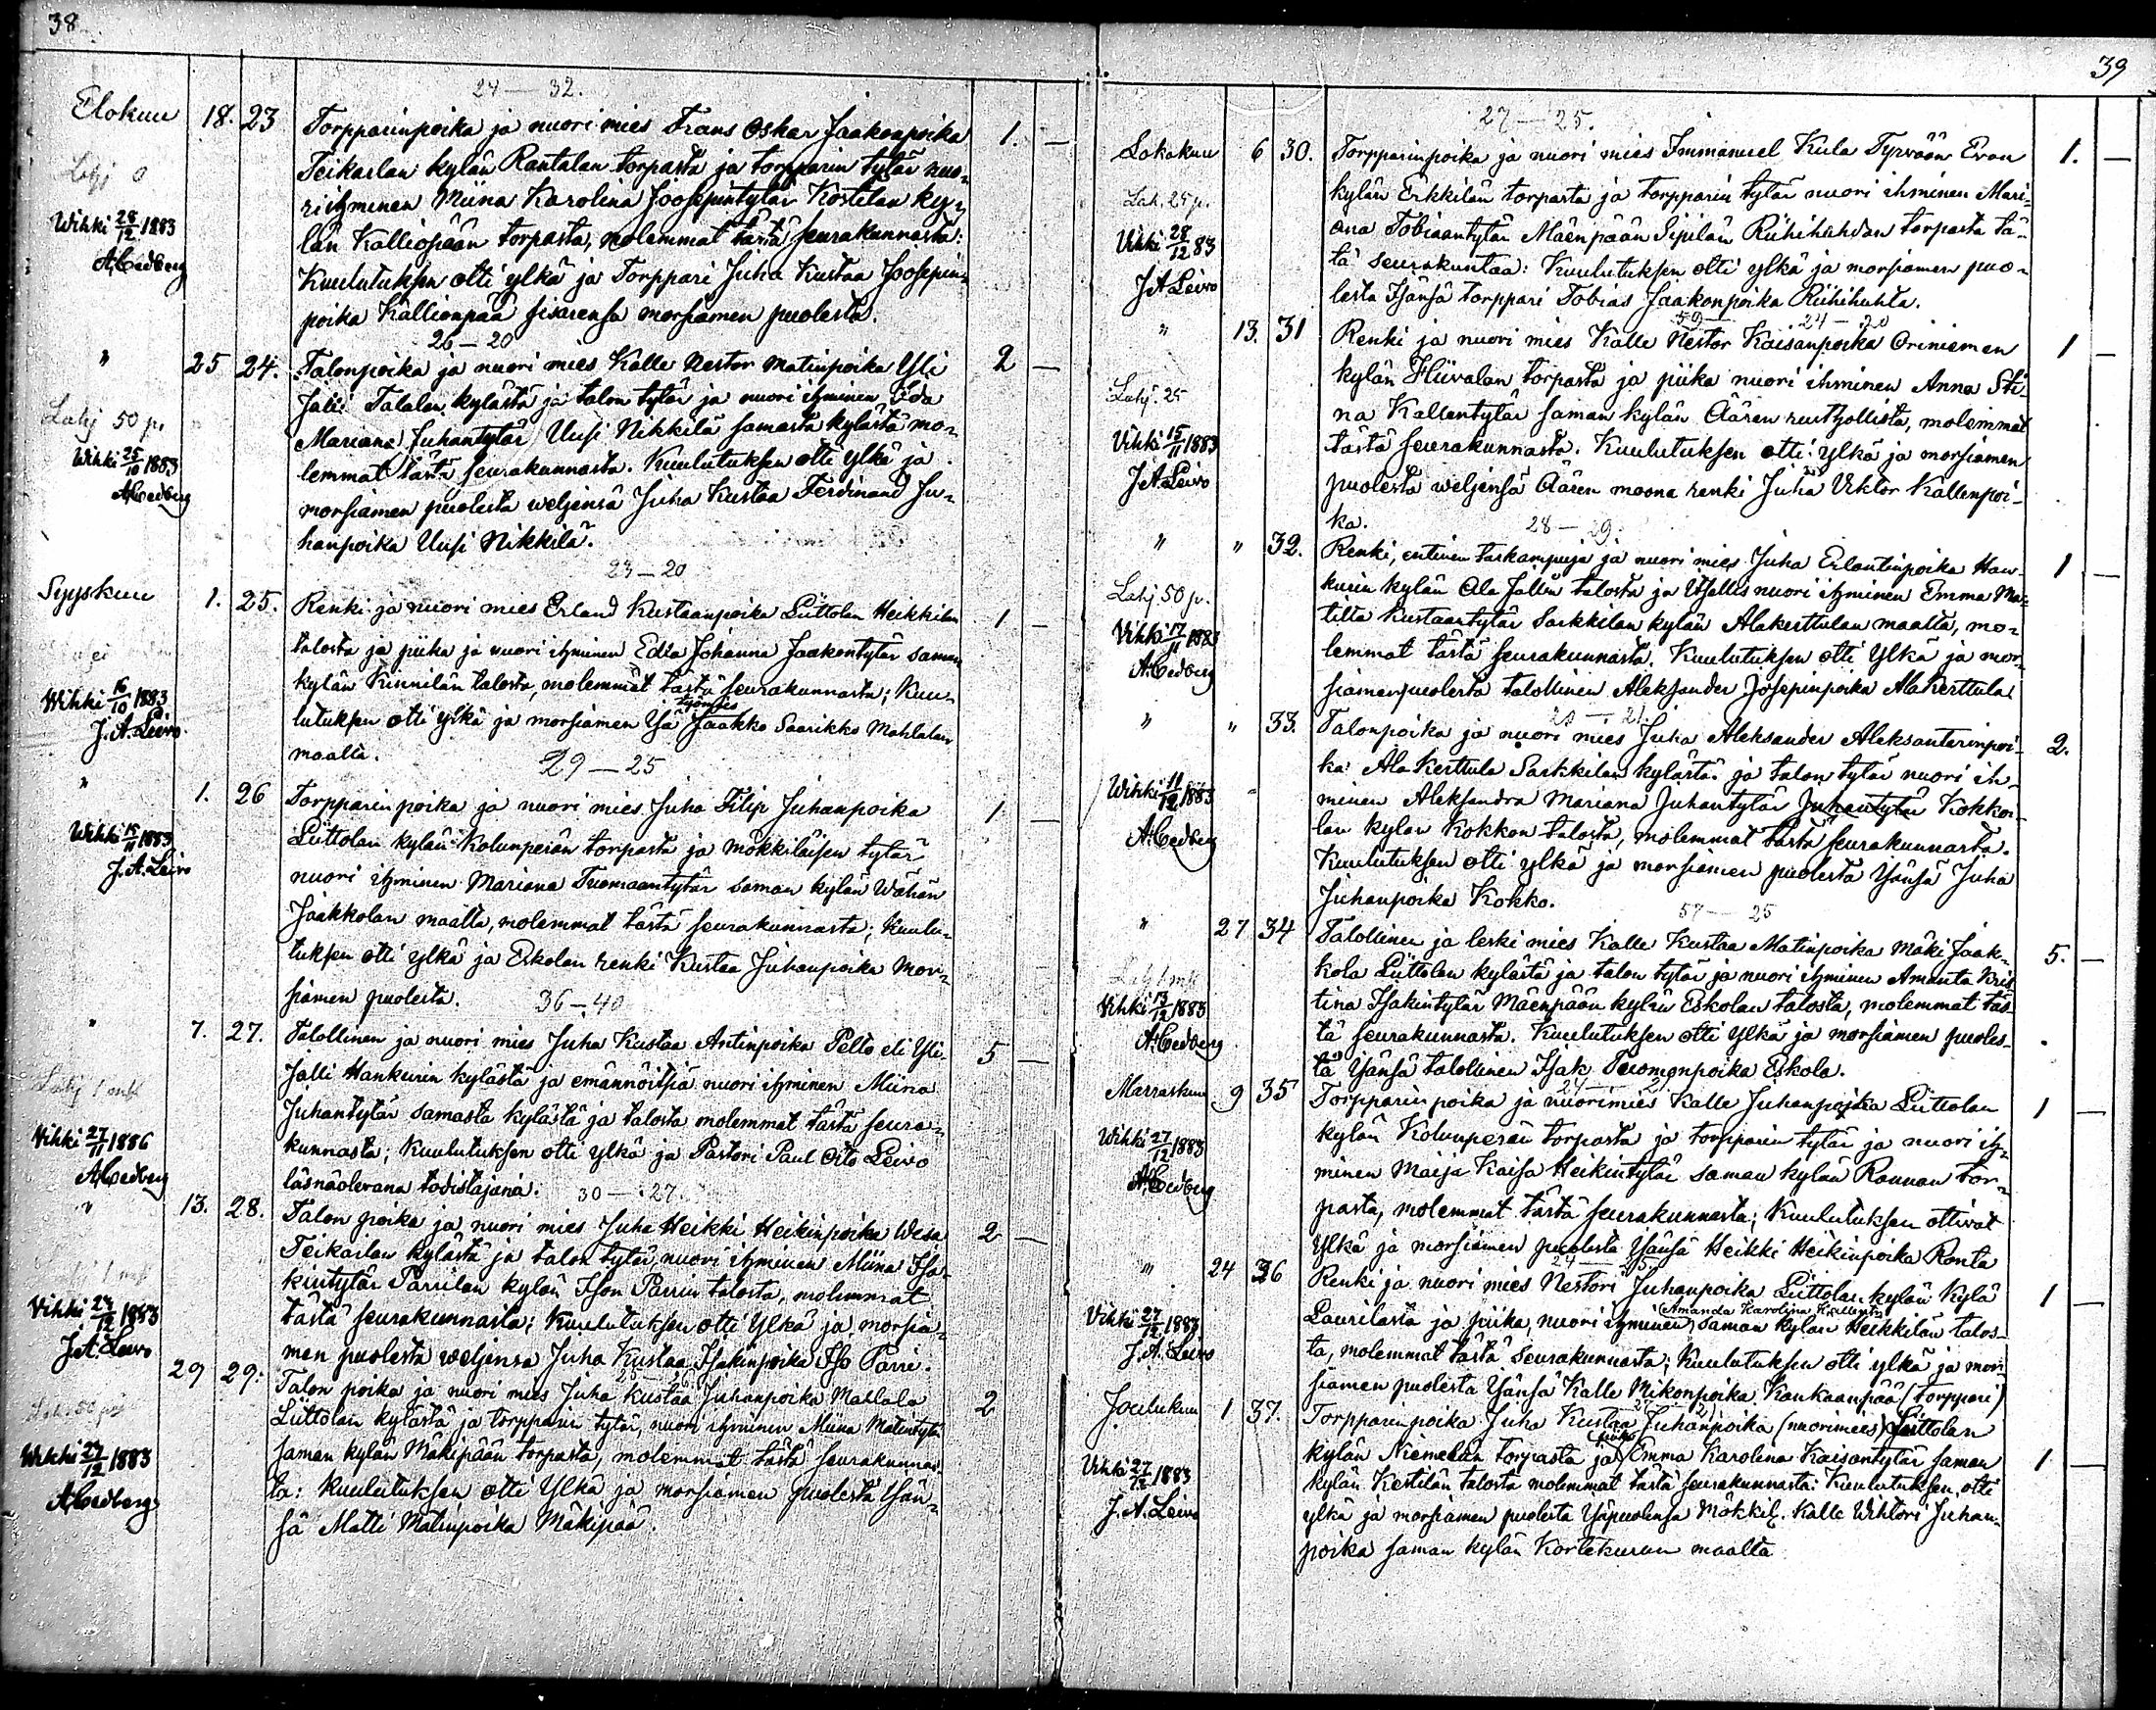 38
24 — 32.
Elokuu 18. 23 Torpparinpoika ja nuori mies Frans Oskar Jaakonpoika 1. —
Teikarlan kylän Rantalan torpasta ja torpparin tytär nuo-
Lahj 0
ri ihminen Miina Karolina Joosepintytär Kostilan ky-
Wihki 28/12 1883
län Kalliopään torpasta, molemmat tästä seurakunnasta:
A. Cedberg
Kuulutuksen otti ylkä ja Torppari Juha Kustaa Joosepin-
poika Kallionpää sisarensa morsiamen puolesta.
26 — 20
" 25 24. Talonpoika ja nuori mies Kalle Nestor Matinpoika Yli 2 —
Jalli Talalan kylästä ja talon tytär ja nuori ihminen Eda
Lahj 50 p.
Mariana Juhantytär Uusi Nikkilä samasta kylästä mo-
Wihki 25/10 1883
lemmat tästä seurakunnasta. Kuulutuksen otti ylkä ja
A Cedberg
morsiamen puolesta weljensä Juha Kustaa Ferdinand Ju-
hanpoika Uusi Nikkilä.
23 — 20
Syyskuu 1. 25. Renki ja nuori mies Erland Kustaanpoika Liittolan Heikkilän 1 —
talosta ja piika ja nuori ihminen Edla Johanna Jaakontytär saman
kylän Kinnilän talosta, molemmat tästä seurakunnasta; Kuu-
Wihki 16/10 1883
työmies
lutuksen otti ylkä ja morsiamen Isä Jaakko Saarikko Mahlalan
J. A. Leivo
maalta.
29 — 25
" 1. 26 Torpparin poika ja nuori mies Juho Filip Juhanpoika 1 —
Liittolan kylän Kolunperän torpasta ja mökkiläisen tytär
Wihki 15/11 1883
J. A. Leivo
nuori ihminen Mariana Tuomaantytär saman kylän Wähän
Jaakkolan maalta, molemmat tästä seurakunnasta; Kuulu-
tuksen otti ylkä ja Eskolan renki Kustaa Juhanpoika mor-
siamen puolesta.
36 — 40
" 7. 27. Talollinen ja nuori mies Juha Kustaa Antinpoika Pelto eli Yli- 5 —
Jalli Hankurin kylästä ja emännöitsiä nuori ihminen Miina
Lahj 1 mk
Juhantytär samasta kylästä ja talosta molemmat tästä seura-
Wihki 27/11 1886
kunnasta; Kuulutuksen otti ylkä ja Pastori Paul Oito Leivo
A Cedberg
läsnäolevana todistajana.
30 — 27
" 13. 28. Talon poika ja nuori mies Juha Heikki Heikinpoika Wesa 2 —
Teikarlan kylästä ja talon tytär, nuori ihminen Miina Isa-
kintytär Parrilan kylän Ison Parrin talosta, molemmat
Vihki 27/12 1883
tästä seurakunnasta; Kuulutuksen otti Ylkä ja morsia-
J. A. Leivo
men puolesta weljensä Juha Kustaa Isakinpoika Iso Parri.
25 — 26
29 29. Talon poika ja nuori mies Juha Kustaa Juhanpoika Mahlala 2
Lahj. 50 p
Liittolan kylästä ja torpparin tytär, nuori ihminen Miina Matintytär
saman kylän Mäkipään torpasta, molemmat tästä seurakunnas-
Wihki 27/12 1883
ta: Kuulutuksen otti Ylkä ja morsiamen puolesta Isän-
A Cedberg
sä Matti Matinpoika Mäkipää.
39
27 — 25.
Lokakuu 6 30. Torpparinpoika ja nuori mies Immanuel Kula Tyrvään Evon 1. —
kylän Erkkilän torpasta ja torpparin tytär nuori ihminen Mari-
Lah. 25 p.
ana Tobiaantytär Mäenpään Sipilän Riihihuhdan torpasta tä-
Vihki 28/12 83
tä seurakuntaa: Kuulutuksen otti ylkä ja morsiamen puo-
J A Leivo
lesta Isänsä torppari Tobias Jaakonpoika Riihihuhta.
24 — 20
" 13. 31 Renki ja nuori mies Kalle Nestor Kaisanpoika Oriniemen 1 —
kylän Hiivalan torpasta ja piika nuori ihminen Anna Sti-
Lahj. 25
na Kallentytär saman kylän Äären rusthollista, molemmat
Vihki 15/11 1883
tästä seurakunnasta. Kuulutuksen otti ylkä ja morsiamen
J A Leivo
puolesta weljensä Äären moona renki Juha Viktor Kallenpoi-
ka.
28 — 29.
" " 32. Renki, entinen tarkampuja ja nuori mies Juha Erlantinpoika Han- 1 —
kurin kylän Ala Jallin talosta ja Itsellis nuori ihminen Emma Ma-
Lahj 50 p.
tilta Kustaantytär Sarkkilan kylän Alakerttulan maalta, mo-
Vihki 17/11 1883
lemmat tästä seurakunnasta. Kuulutuksen otti Ylkä ja mor-
A. Cedberg
siamen puolesta talollinen Aleksander Josepinpoika Alakerttula
" " 33. Talonpoika ja nuori mies Juha Aleksander Aleksanterinpoi- 2.
ka Ala Kerttula Sarkkilan kylästä ja talon tytär nuori ih-
Wihki 11/12 1883
minen Aleksandra Mariana Juhantytär Juhantytär Kokkoi-
lan kylän Kokkon talosta, molemmat tästä seurakunnasta.
A. Cedberg
Kuulutuksen otti ylkä ja morsiamen puolesta Isänsä Juha
Juhanpoika Kokko.
57 — 25
" 27 34 Talollinen ja leski mies Kalle Kustaa Matinpoika Mäki Jaak- 5. —
kola Liittolan kylästä ja talon tytär ja nuori ihminen Amanta Kris-
Vihki 13/12 1883
tina Isakintytär Mäenpään kylän Eskolan talosta, molemmat täs-
A. Cedberg
tä seurakunnasta. Kuulutuksen otti ylkä ja morsiamen puoles-
ta Isänsä talollinen Isak Tuomonpoika Eskola.
Marraskuu 9 35 Torpparin poika ja nuorimies Kalle Juhanpoika Liittolan 1 —
kylän Kolunperän torpasta ja torpparin tytär ja nuori ih-
Wihki 27/12 1883
minen Maija Kaisa Heikintytär saman kylän Rannan tor-
A. Cedberg
pasta, molemmat tästä seurakunnasta; Kuulutuksen ottivat
Ylkä ja morsiamen puolesta Isänsä Heikki Heikinpoika Ranta
" 24 36 Renki ja nuori mies Nestori Juhanpoika Liittolan kylän Kylä 1 —
Amanda Karolina Kallentr
Laurilasta ja piika, nuori ihminen, saman kylän Heikkilän talos-
Vihki 27/12 1883
ta, molemmat tästä seurakunnasta; Kuulutuksen otti ylkä ja mor-
J. A. Leivo
siamen puolesta Isänsä Kalle Mikonpoika Kankaanpää (Torppari)
Joulukuu 1 37. Torpparin poika Juha Kustaa Juhanpoika (nuorimies) Liittolan
piika
kylän Niemelän torpasta ja Emma Karolina Kaisantytär saman 1 —
Vihki 27/12 1883
kylän Kestilän talosta molemmat tästä seurakunnasta: Kuulutuksen otti
J. A. Leivo
ylkä ja morsiamen puolesta Isäpuolensa Mökkil. Kalle Wihtori Juhan-
poika saman kylän Kortekurun maalta